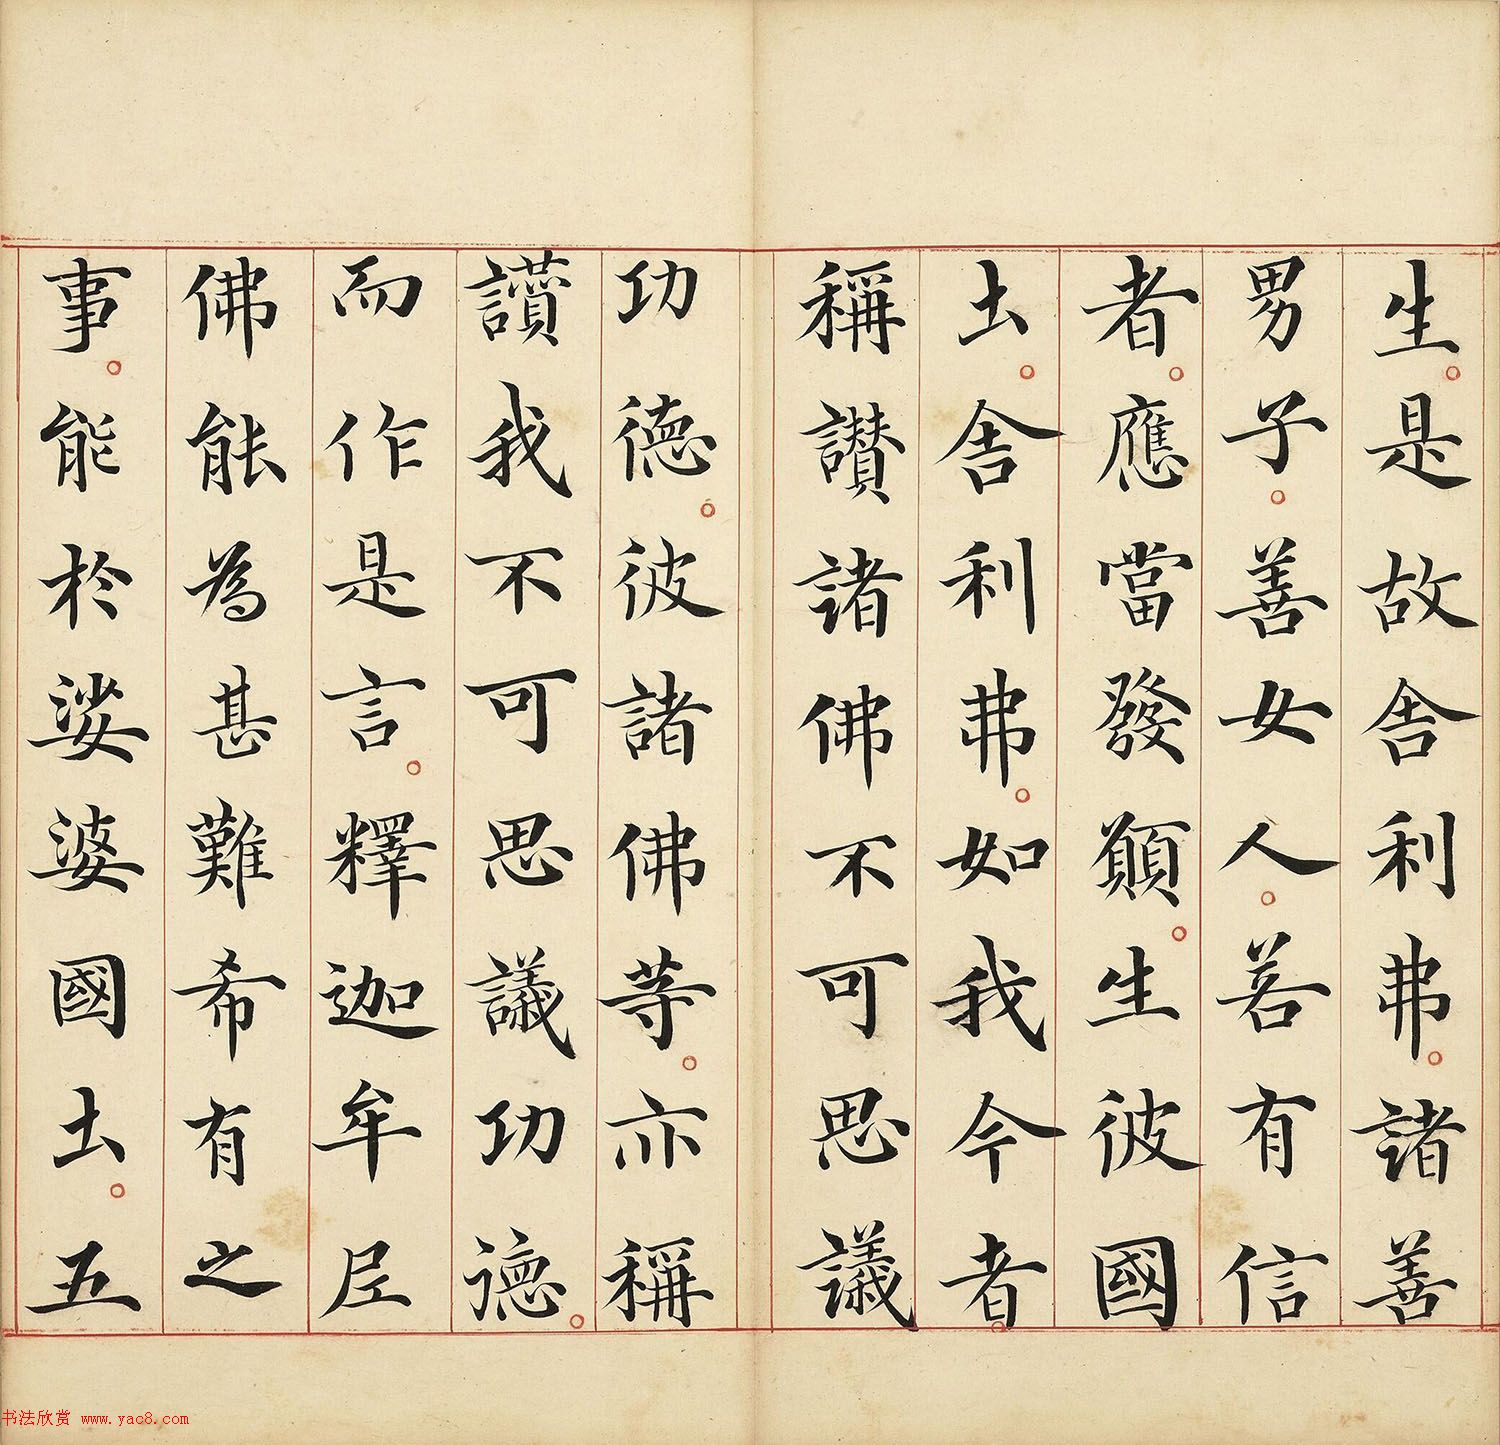 生。是故舍利弗。諸善
男子。善女人。若有信
者。應當發願。生彼國
土。舍利弗。如我今者。
稱讃諸佛不可思議
功德。彼諸佛等。亦稱
讚我不可思議功德。
而作是言。釋迦牟尼
佛能為甚難希有之
事。能於娑婆國土。五
书法欣赏 www.yac8.com